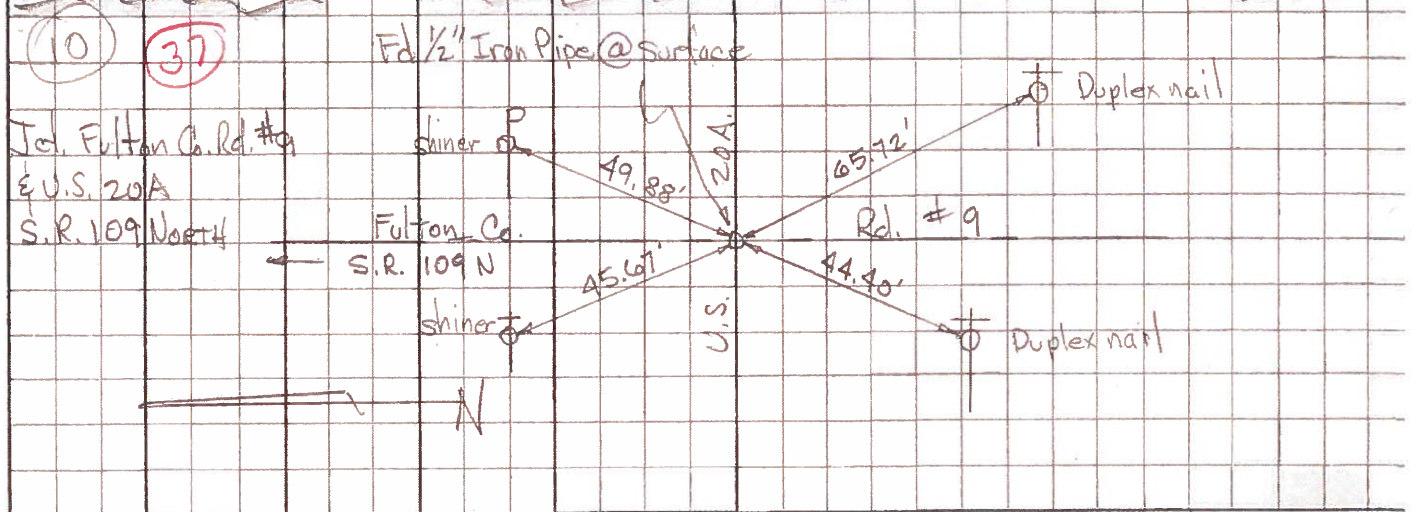 10 37
Fd 1/2" Iron Pipe @ surface
Jct. Fulton Co. Rd. #9
& U.S. 20A
S.R. 109 North
shiner
P
49.88'
20A.
65.72'
Duplex nail
Fulton Co.
Rd. #9
S.R. 109 N
45.67'
44.40'
shiner
U.S.
Duplex nail
N